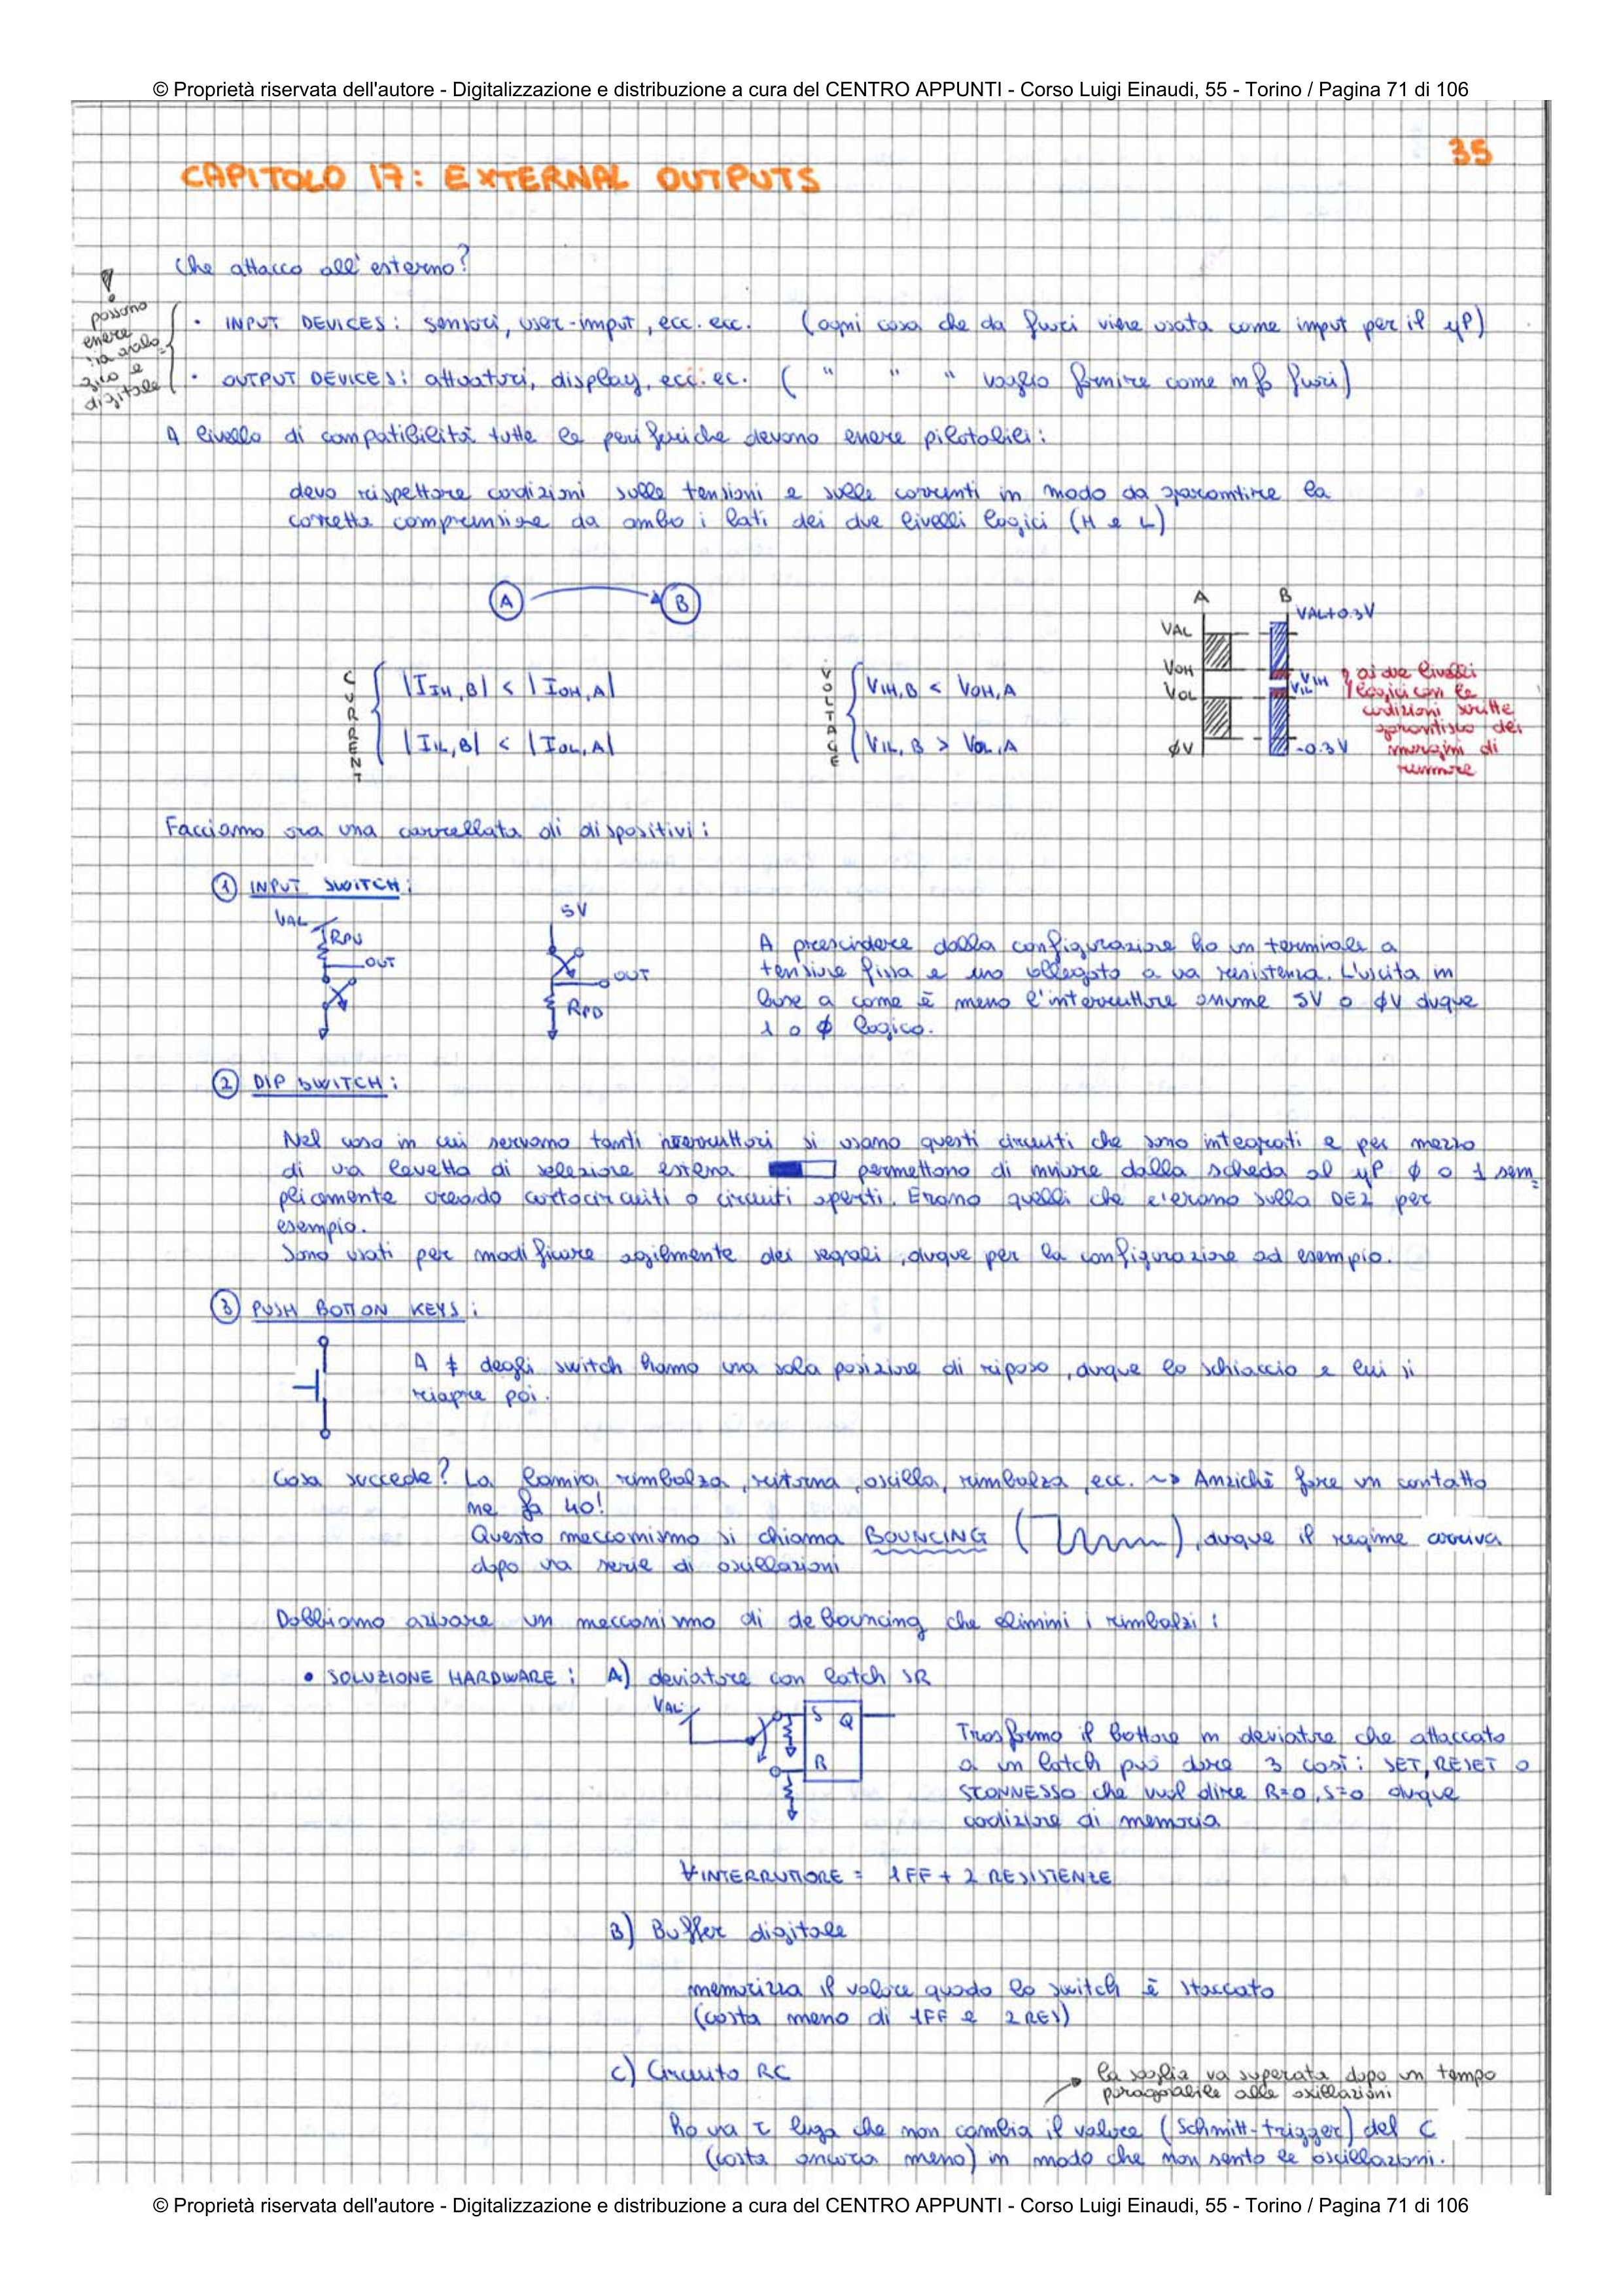 © Proprietà riservata dell'autore - Digitalizzazione e distribuzione a cura del CENTRO APPUNTI - Corso Luigi Einaudi, 55 - Torino / Pagina 71 di 106
35
CAPITOLO 17: EXTERNAL OUTPUTS
Che attacco all'esterno?
! possono
essere
sia analo-
gico e
digitale
• INPUT DEVICES: sensori, user-input, ecc. ecc. (ogni cosa che da fuori viene usata come input per il μP)
• OUTPUT DEVICES: attuatori, display, ecc. ec. ( " " " voglio fornire come info fuori)
A livello di compatibilità tutte le periferiche devono essere pilotabili:
devo rispettare condizioni sulle tensioni e sulle correnti in modo da garantire la
corretta comprensione da ambo i lati dei due livelli logici (H e L)
A B
CURRENT
|IIH,B| < |IOH,A|
|IIL,B| < |IOL,A|
VOLTAGE
VIH,B < VOH,A
VIL,B > VOL,A
A B
VAL VAL+0.3V
VOH VIH
VOL VIL
φV -0.3V
ai due livelli
logici con le
condizioni scritte
garantisco dei
margini di
rumore
Facciamo ora una carrellata di dispositivi:
① INPUT SWITCH:
VAL
RPU
OUT
5V
OUT
RPD
A prescindere dalla configurazione ho un terminale a
tensione fissa e uno collegato a una resistenza. L'uscita in
base a come è messo l'interruttore assume 5V o φV dunque
1 o φ logico.
② DIP SWITCH:
Nel caso in cui servano tanti interruttori si usano questi circuiti che sono integrati e per mezzo
di una levetta di selezione esterna permettono di inviare dalla scheda al μP φ o 1 sem=
plicemente creando cortocircuiti o circuiti aperti. Erano quelli che c'erano sulla DE2 per
esempio.
Sono usati per modificare agilmente dei segnali, dunque per la configurazione ad esempio.
③ PUSH BOTTON KEYS:
A ≠ degli switch hanno una sola posizione di riposo, dunque lo schiaccio e lui si
riapre poi.
Cosa succede? La lamina rimbalza, ritorna, oscilla, rimbalza, ecc. ~> Anzichè fare un contatto
ne fa 40!
Questo meccanismo si chiama BOUNCING ( ), dunque il regime arriva
dopo una serie di oscillazioni
Dobbiamo attivare un meccanismo di debouncing che elimini i rimbalzi:
• SOLUZIONE HARDWARE: A) deviatore con latch SR
VAL
S Q
R
Trasformo il bottone in deviatore che attaccato
a un latch può dare 3 casi: SET, RESET o
SCONNESSO che vuol dire R=0, S=0 dunque
condizione di memoria
∀INTERRUTTORE = 1FF + 2 RESISTENZE
B) Buffer digitale
memorizza il valore quando lo switch è staccato
(costa meno di 1FF e 2 RES)
C) Circuito RC
la soglia va superata dopo un tempo
paragonabile alle oscillazioni
ho una τ lunga che non cambia il valore (Schmitt-trigger) del C
(costa ancora meno) in modo che non sento le oscillazioni.
© Proprietà riservata dell'autore - Digitalizzazione e distribuzione a cura del CENTRO APPUNTI - Corso Luigi Einaudi, 55 - Torino / Pagina 71 di 106